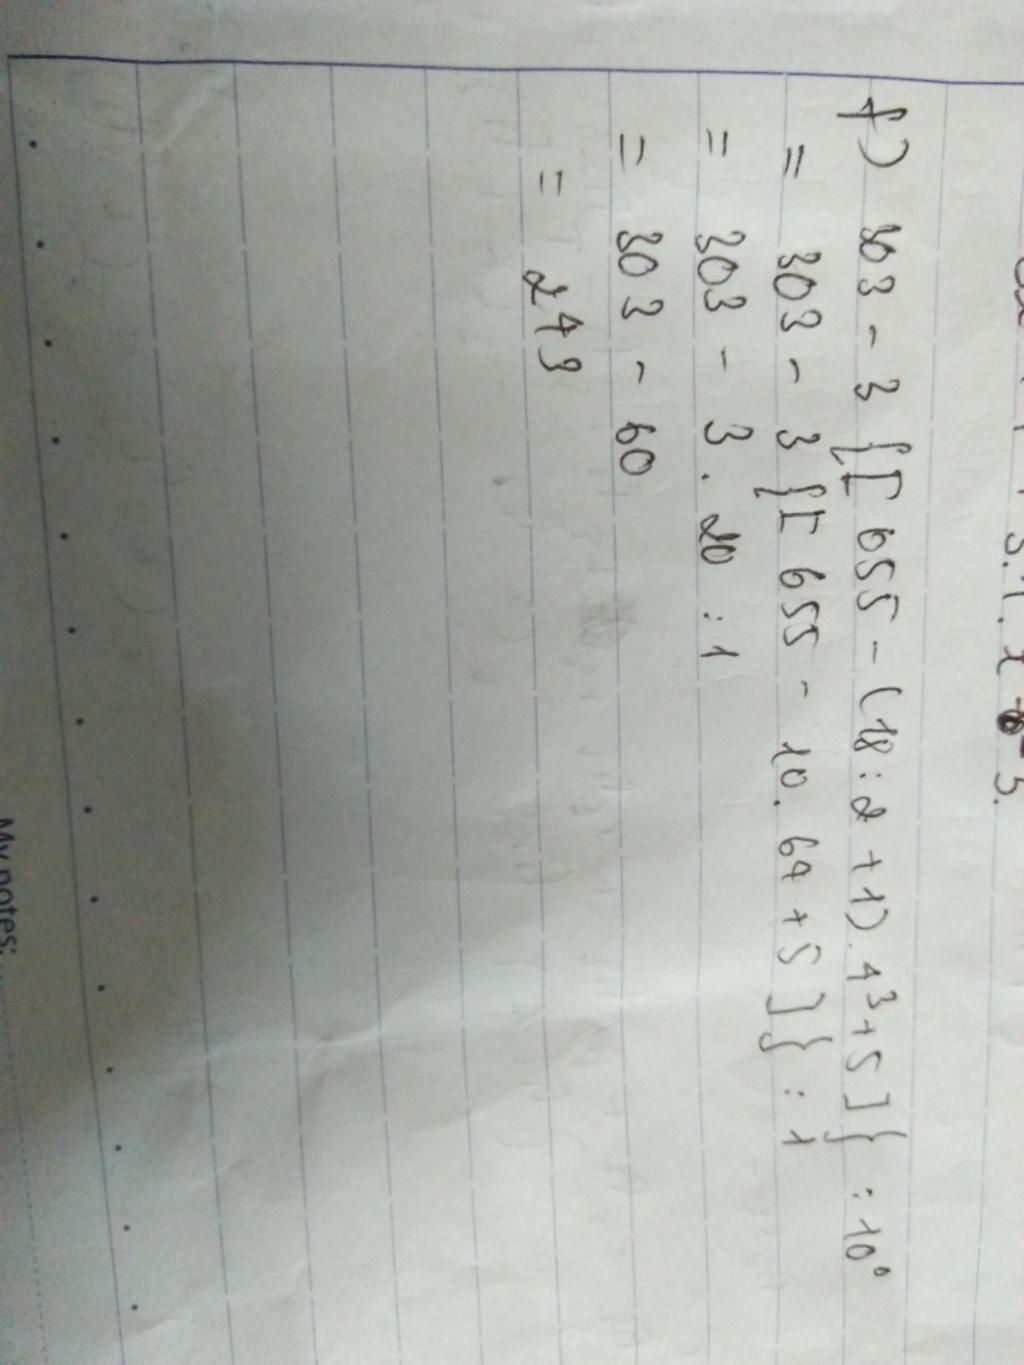 f) 303 - 3 {[ 655 - (18 : 2 + 1). 4³ + 5 ]} : 10⁰
= 303 - 3 {[ 655 - 10. 64 + 5 ]} : 1
= 303 - 3 . 20 : 1
= 303 - 60
= 243
My notes: